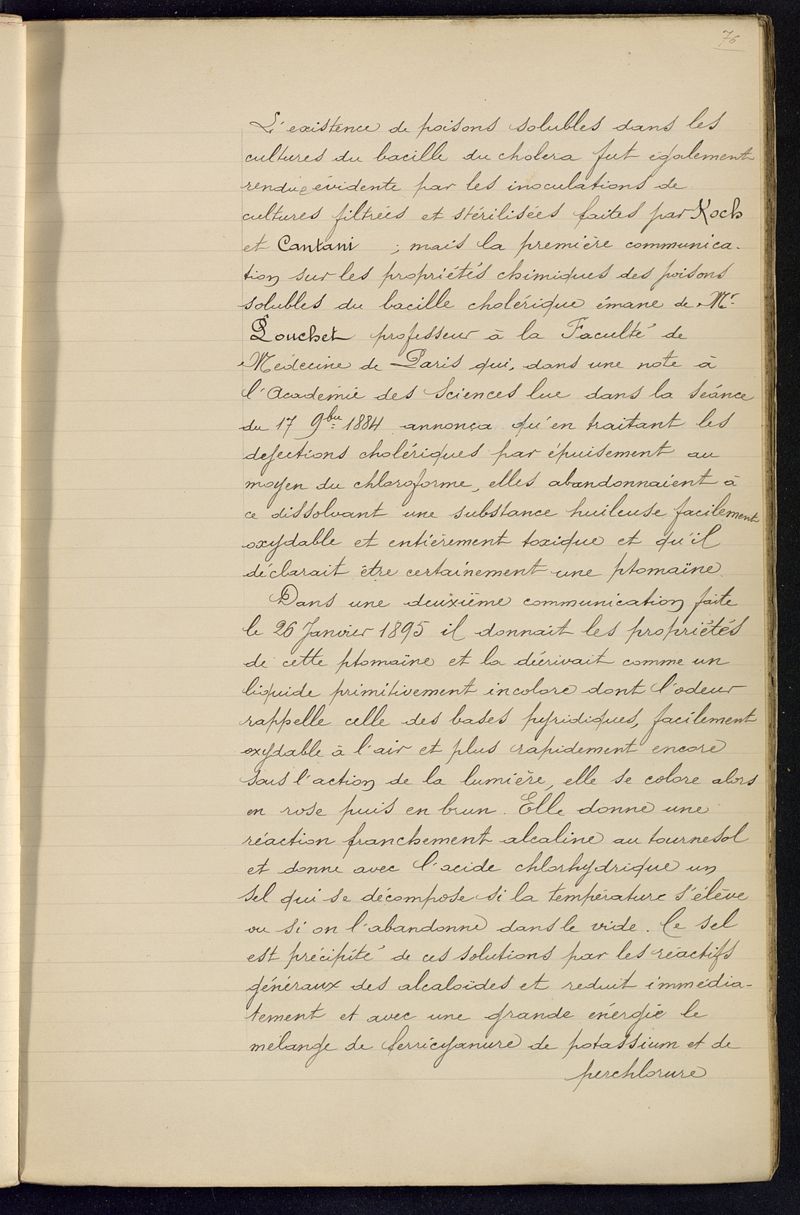 76
L'existence de poisons solubles dans les
cultures du bacille du cholera fut également
rendue évidente par les inoculations de
cultures filtrées et stérilisées faites par Koch
et Cantani ; mais la première communica-
tion sur les propriétés chimiques des poisons
solubles du bacille cholérique émane de Mr
Pouchet professeur à la Faculté de
Médecine de Paris qui, dans une note à
l'Académie des Sciences lue dans la séance
du 17 9bre 1884 annonça qu'en traitant les
dejections cholériques par épuisement au
moyen du chloroforme, elles abandonnaient à
ce dissolvant une substance huileuse facilement
oxydable et entièrement toxique et qu'il
déclarait être certainement une ptomaïne.
Dans une deuxième communication faite
le 26 Janvier 1895 il donnait les propriétés
de cette ptomaïne et la décrivait comme un
liquide primitivement incolore dont l'odeur
rappelle celle des bases pyridiques, facilement
oxydable à l'air et plus rapidement encore
sous l'action de la lumière, elle se colore alors
en rose puis en brun. Elle donne une
réaction franchement alcaline au tournesol
et donne avec l'acide chlorhydrique un
sel qui se décompose si la température s'élève
ou si on l'abandonne dans le vide. Ce sel
est précipité de ces solutions par les réactifs
généraux des alcaloïdes et reduit immédia-
tement et avec une grande énergie le
mélange de ferricyanure de potassium et de
perchlorure